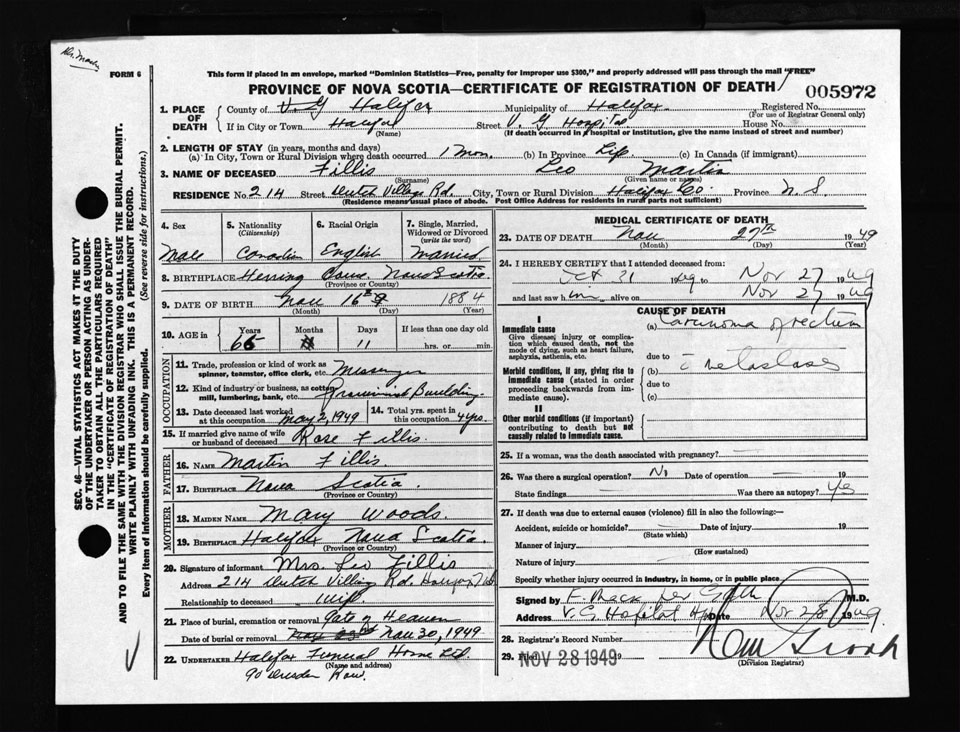 FORM 6
This form if placed in an envelope, marked "Dominion Statistics—Free, penalty for improper use $300," and properly addressed will pass through the mail "FREE"
PROVINCE OF NOVA SCOTIA—CERTIFICATE OF REGISTRATION OF DEATH
005972
1. PLACE OF DEATH
County of Halifax Municipality of Halifax Registered No.
(For use of Registrar General only)
If in City or Town Halifax Street V. G Hospital House No.
(Name) (If death occurred in hospital or institution, give the name instead of street and number)
2. LENGTH OF STAY (in years, months and days)
(a) In City, Town or Rural Division where death occurred 1 Mon. (b) In Province Life (c) In Canada (if immigrant)
3. NAME OF DECEASED Fillis Leo Martin
(Surname) (Given name or names)
RESIDENCE No. 214 Street Dutch Village Rd. City, Town or Rural Division Halifax Co. Province N. S
(Residence means usual place of abode. Post Office Address for residents in rural parts not sufficient)
4. Sex
Male
5. Nationality
(Citizenship)
Canadian
6. Racial Origin
English
7. Single, Married, Widowed or Divorced
(write the word)
Married
8. BIRTHPLACE Herring Cove. Nova Scotia
(Province or Country)
9. DATE OF BIRTH Nov 16th 1884
(Month) (Day) (Year)
10. AGE in
Years Months Days If less than one day old
65 11 hrs. or min.
OCCUPATION
11. Trade, profession or kind of work as spinner, teamster, office clerk, etc. Messenger
12. Kind of industry or business, as cotton mill, lumbering, bank, etc. Provincial Building
13. Date deceased last worked at this occupation May 2, 1949
14. Total yrs. spent in this occupation 4 yrs.
15. If married give name of wife or husband of deceased Rose Fillis.
FATHER
16. NAME Martin Fillis.
17. BIRTHPLACE Nova Scotia
(Province or Country)
MOTHER
18. MAIDEN NAME Mary Woods.
19. BIRTHPLACE Halifax Nova Scotia.
(Province or Country)
20. Signature of informant Mrs. Leo Fillis
Address 214 Dutch Village Rd. Halifax
Relationship to deceased Wife
21. Place of burial, cremation or removal Gate of Heaven
Date of burial or removal Nov 30, 1949
22. UNDERTAKER Halifax Funeral Home Ltd.
(Name and address)
90 Dresden Row.
MEDICAL CERTIFICATE OF DEATH
23. DATE OF DEATH Nov 27th 1949
(Month) (Day) (Year)
24. I HEREBY CERTIFY that I attended deceased from:
Oct 31 1949 to Nov 27 1949
and last saw him alive on Nov 27 1949
CAUSE OF DEATH
I
Immediate cause
Give disease, injury or complication which caused death, not the mode of dying, such as heart failure, asphyxia, asthenia, etc.
(a) Carcinoma of rectum
due to
Morbid conditions, if any, giving rise to immediate cause (stated in order proceeding backwards from immediate cause).
(b) c̄ metastases
due to
(c)
II
Other morbid conditions (if important) contributing to death but not causally related to immediate cause.
25. If a woman, was the death associated with pregnancy?
26. Was there a surgical operation? No Date of operation 19
State findings Was there an autopsy? Yes
27. If death was due to external causes (violence) fill in also the following:—
Accident, suicide or homicide? Date of injury 19
(State which)
Manner of injury
(How sustained)
Nature of injury
Specify whether injury occurred in industry, in home, or in public place
Signed by M.D.
Address V. G. Hospital Date Nov 28 1949
28. Registrar's Record Number
29. NOV 28 1949
(Division Registrar)
SEC. 46—VITAL STATISTICS ACT MAKES IT THE DUTY OF THE UNDERTAKER OR PERSON ACTING AS UNDERTAKER TO OBTAIN ALL THE PARTICULARS REQUIRED IN THE "CERTIFICATE OF REGISTRATION OF DEATH"
AND TO FILE THE SAME WITH THE DIVISION REGISTRAR WHO SHALL ISSUE THE BURIAL PERMIT.
WRITE PLAINLY WITH UNFADING INK. THIS IS A PERMANENT RECORD.
Every item of information should be carefully supplied. (See reverse side for instructions.)